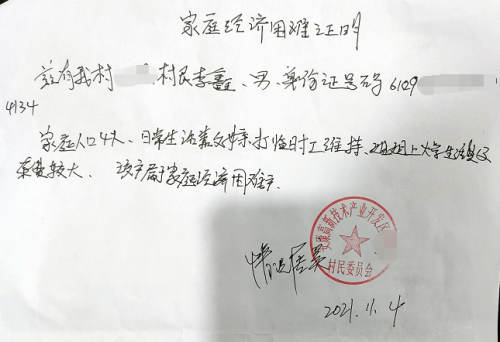 家庭经济困难证明
兹有我村 村民李鑫、男、身份证号码6129
4134
家庭人口4人、日常生活靠父母亲打临时工维持、姐姐上大学生活
较大、该户属于家庭经济困难户.
情况属实
安康高新技术产业开发区
村民委员会
2021.11.4